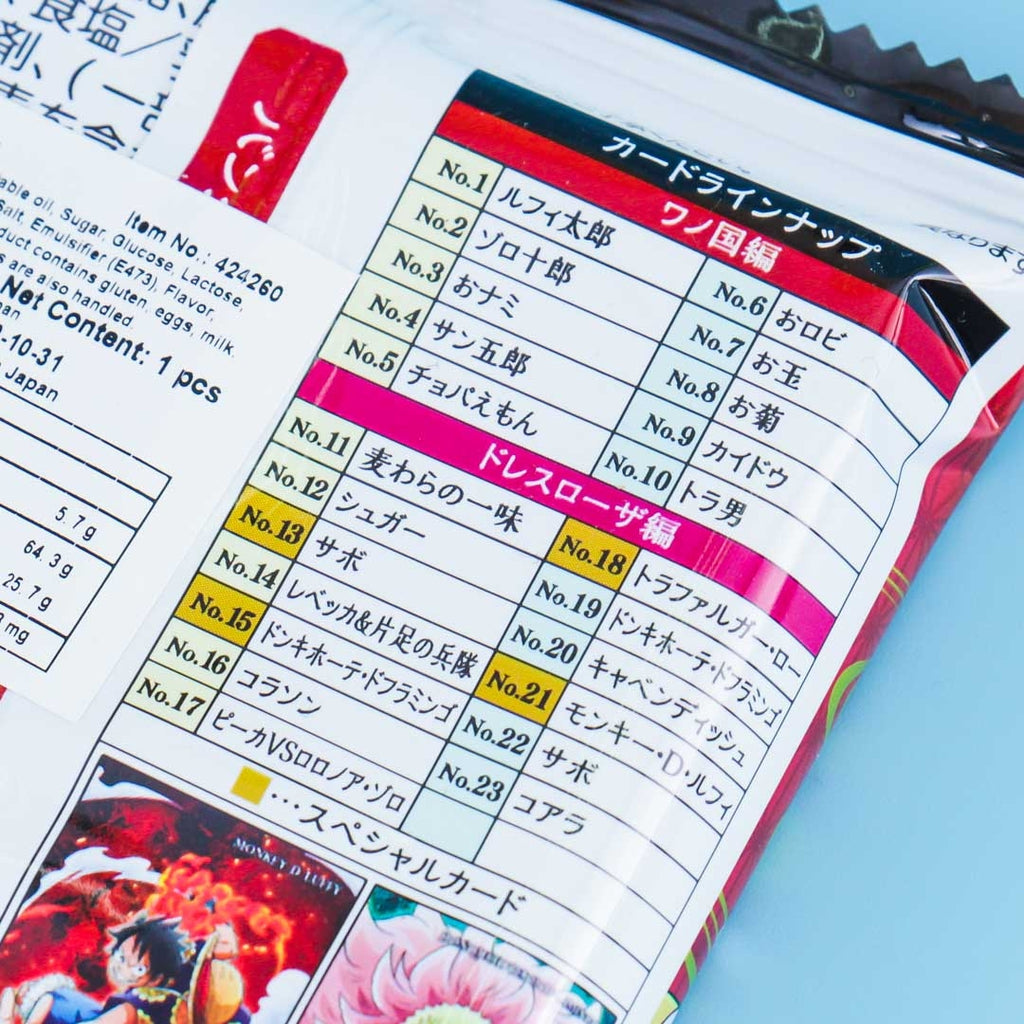 食塩／
剤、(一
able oil, Sugar, Glucose, Lactose,
Salt, Emulsifier (E473), Flavor,
duct contains gluten, eggs, milk.
s are also handled.
Item No.: 424260
Net Content: 1 pcs
-10-31
Japan
5.7 g
64.3 g
25.7 g
mg
カードラインナップ
ワノ国編
No.1 ルフィ太郎
No.2 ゾロ十郎
No.3 おナミ
No.4 サン五郎
No.5 チョパえもん
No.6 おロビ
No.7 お玉
No.8 お菊
No.9 カイドウ
No.10 トラ男
ドレスローザ編
No.11 麦わらの一味
No.12 シュガー
No.13 サボ
No.14 レベッカ&片足の兵隊
No.15 ドンキホーテ・ドフラミンゴ
No.16 コラソン
No.17 ピーカVSロロノア・ゾロ
No.18 トラファルガー・ロー
No.19 ドンキホーテ・ドフラミンゴ
No.20 キャベンディッシュ
No.21 モンキー・D・ルフィ
No.22 サボ
No.23 コアラ
…スペシャルカード
MONKEY D LUFFY